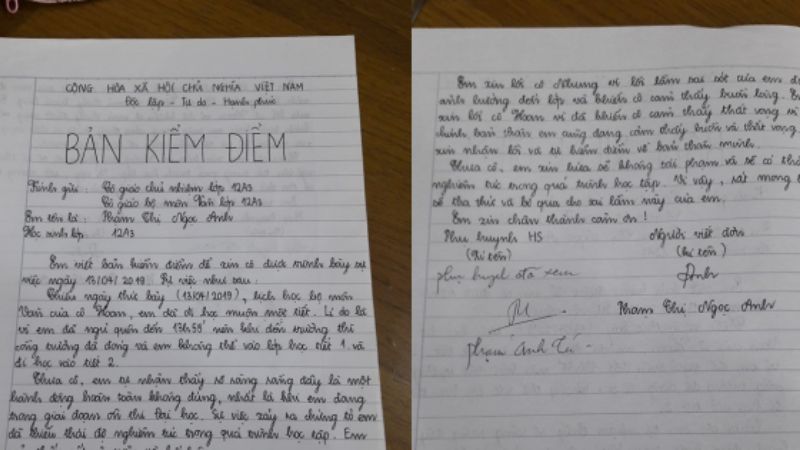 CỘNG HÒA XÃ HỘI CHỦ NGHĨA VIỆT NAM
Độc lập - Tự do - Hạnh phúc
BẢN KIỂM ĐIỂM
Kính gửi : Cô giáo chủ nhiệm lớp 12A3
Cô giáo bộ môn Văn lớp 12A3
Em tên là : Phạm Thị Ngọc Anh
Học sinh lớp : 12A3
Em viết bản kiểm điểm để xin cô được trình bày sự
việc ngày 13/04/2019. Sự việc như sau :
Chiều ngày thứ bảy (13/04/2019), lịch học bộ môn
Văn của cô Hoan, em đã đi học muộn một tiết. Lí do là
vì em đã ngủ quên đến 13h59' nên khi đến trường thì
cổng trường đã đóng và em không thể vào lớp học tiết 1 và
đi học vào tiết 2.
Thưa cô, em tự nhận thấy rõ ràng rằng đây là một
hành động hoàn toàn không đúng, nhất là khi em đang
trong giai đoạn ôn thi Đại học. Sự việc xảy ra chứng tỏ em
đã thiếu thái độ nghiêm túc trong quá trình học tập. Em
Em xin lỗi cô Nhung vì lỗi lầm sai sót của em đã
ảnh hưởng đến lớp và khiến cô cảm thấy buồn lòng. Em
xin lỗi cô Hoan vì đã khiến cô cảm thấy thất vọng vì
chính bản thân em cũng đang cảm thấy buồn và thất vọng
xin nhận lỗi và tự kiểm điểm về bản thân mình.
Thưa cô, em xin hứa sẽ không tái phạm và sẽ có thái
nghiêm túc trong quá trình học tập. Vì vậy, rất mong
sẽ tha thứ và bỏ qua cho sai lầm này của em.
Em xin chân thành cảm ơn !
Phụ huynh HS Người viết đơn
(kí tên) (kí tên)
phụ huynh đã xem Anh
Phạm Thị Ngọc Anh
phạm Anh Tú